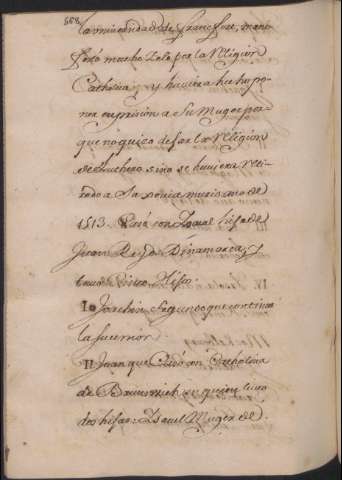 568
la universidad de Francfurt, mani
festó mucho Zelo por la Religion
Catholica, y huviera hecho po-
ner en prision a Su Muger por
que no quiso dejar la Religion
de Luthero si no se huviera Reti
rado a Saxonia murio año de
1513. Casó con Isabel hija de
Juan Rey de Dinamarca, y
tuvo Cinco Hijos
I Joachin Segundo que continua
la sucesion.
II Juan que Casó con Catholina
de Brunswich en quien tuvo
dos hijas: Isabel Muger de